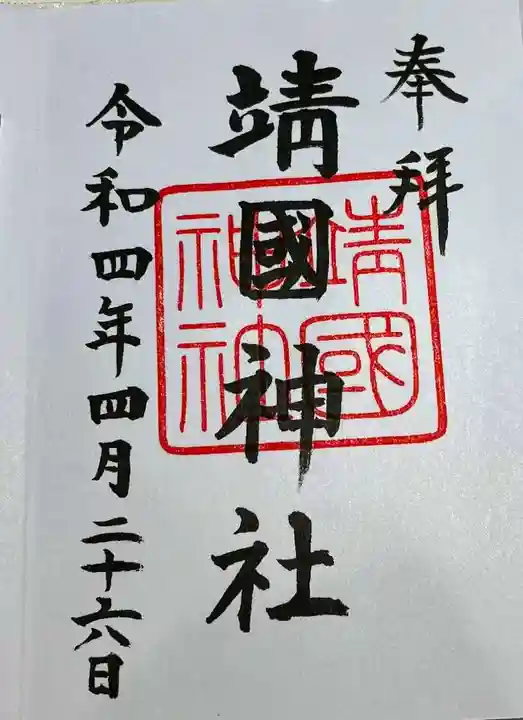 奉拝
靖國神社
靖國神社
令和四年四月二十六日